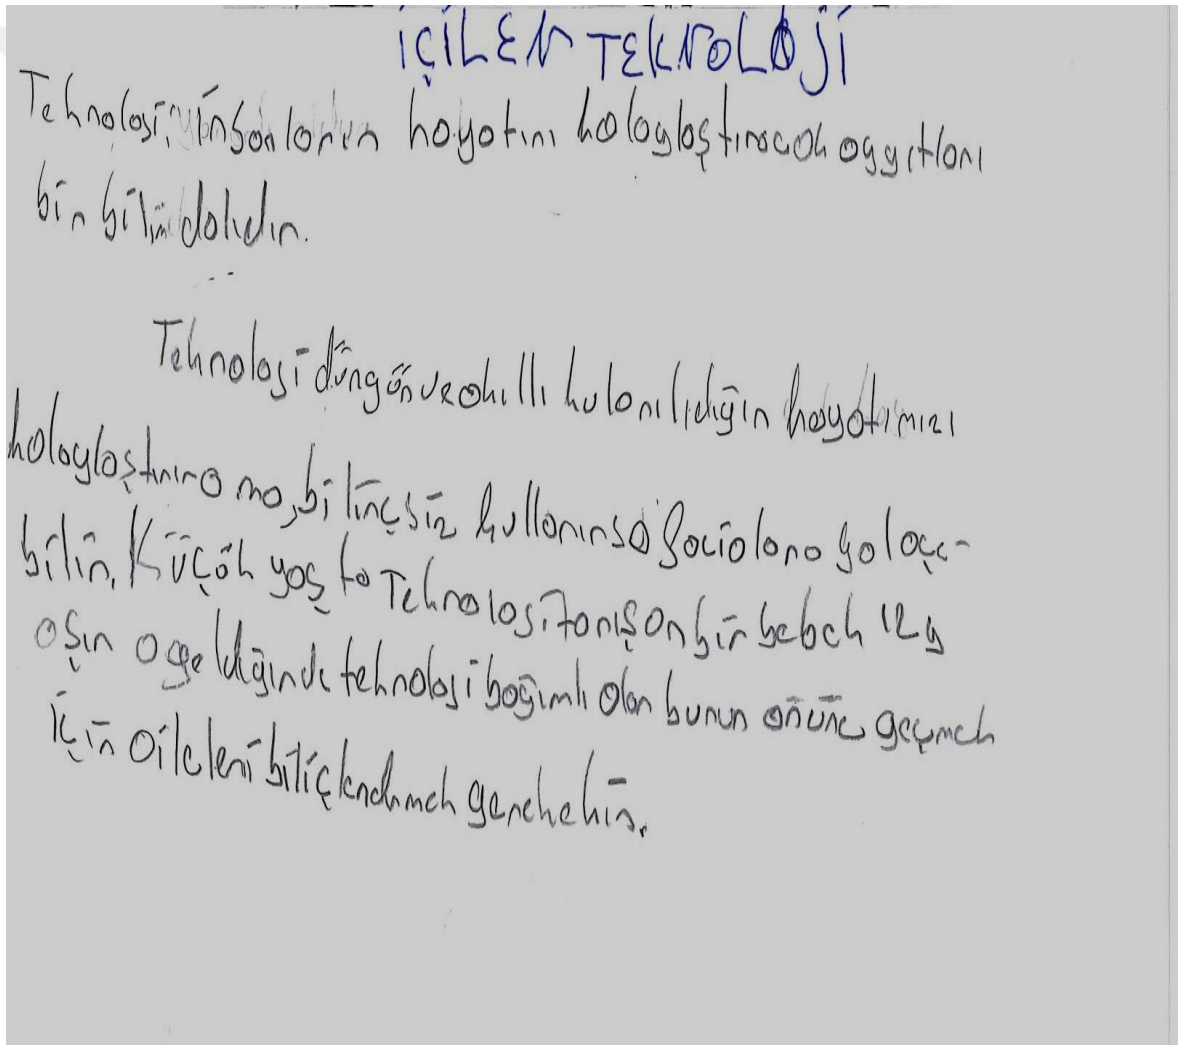 İÇİLEN TEKNOLOJİ
Teknoloji, insanların hayatını kolaylaştıracak aygıtları
bir bilim dalıdır.
Teknoloji düngön ve akıllı kulanılıdığın hayatımızı
kolaylaştırıra ma, bilinçsiz kullanırsa facialara yol aça-
bilir. Küçök yaş ta Teknolosi Tanışan bir bebek 12 y
aşın a geldiğinde teknoloji boğımlı olan bunun önüne geçmek
için aileleri biliçlendirmek gerekekir.